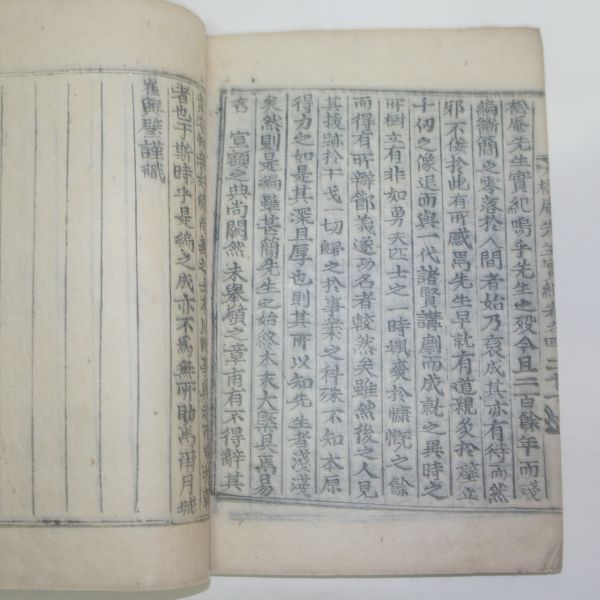 松庵先生實紀卷之四 二十一
松庵先生實紀嗚乎先生之歿今且二百餘年而殘
編斷簡之零落於人間者始乃裒成其亦有待而然
邪不佞於此有所感焉先生早就有道親炙於壁立
千仞之像退而與一代諸賢講劘而成就之異時之
所樹立有非如勇夫匹士之一時颯爽於慷慨之餘
而得有所辦節義遂功名者較然矣雖然後之人見
其拔跡於干戈一切歸之於事業之科殊不知本原
得力之如是其深且厚也則其所以知先生者淺淺
矣然則是編雖甚簡先生之始終本末大槩具焉易
名 宣額之典尚闕然未擧嶺之章甫有不得辭其
者也于斯時乎是編之成亦不爲無所助焉爾月城
崔興璧謹識